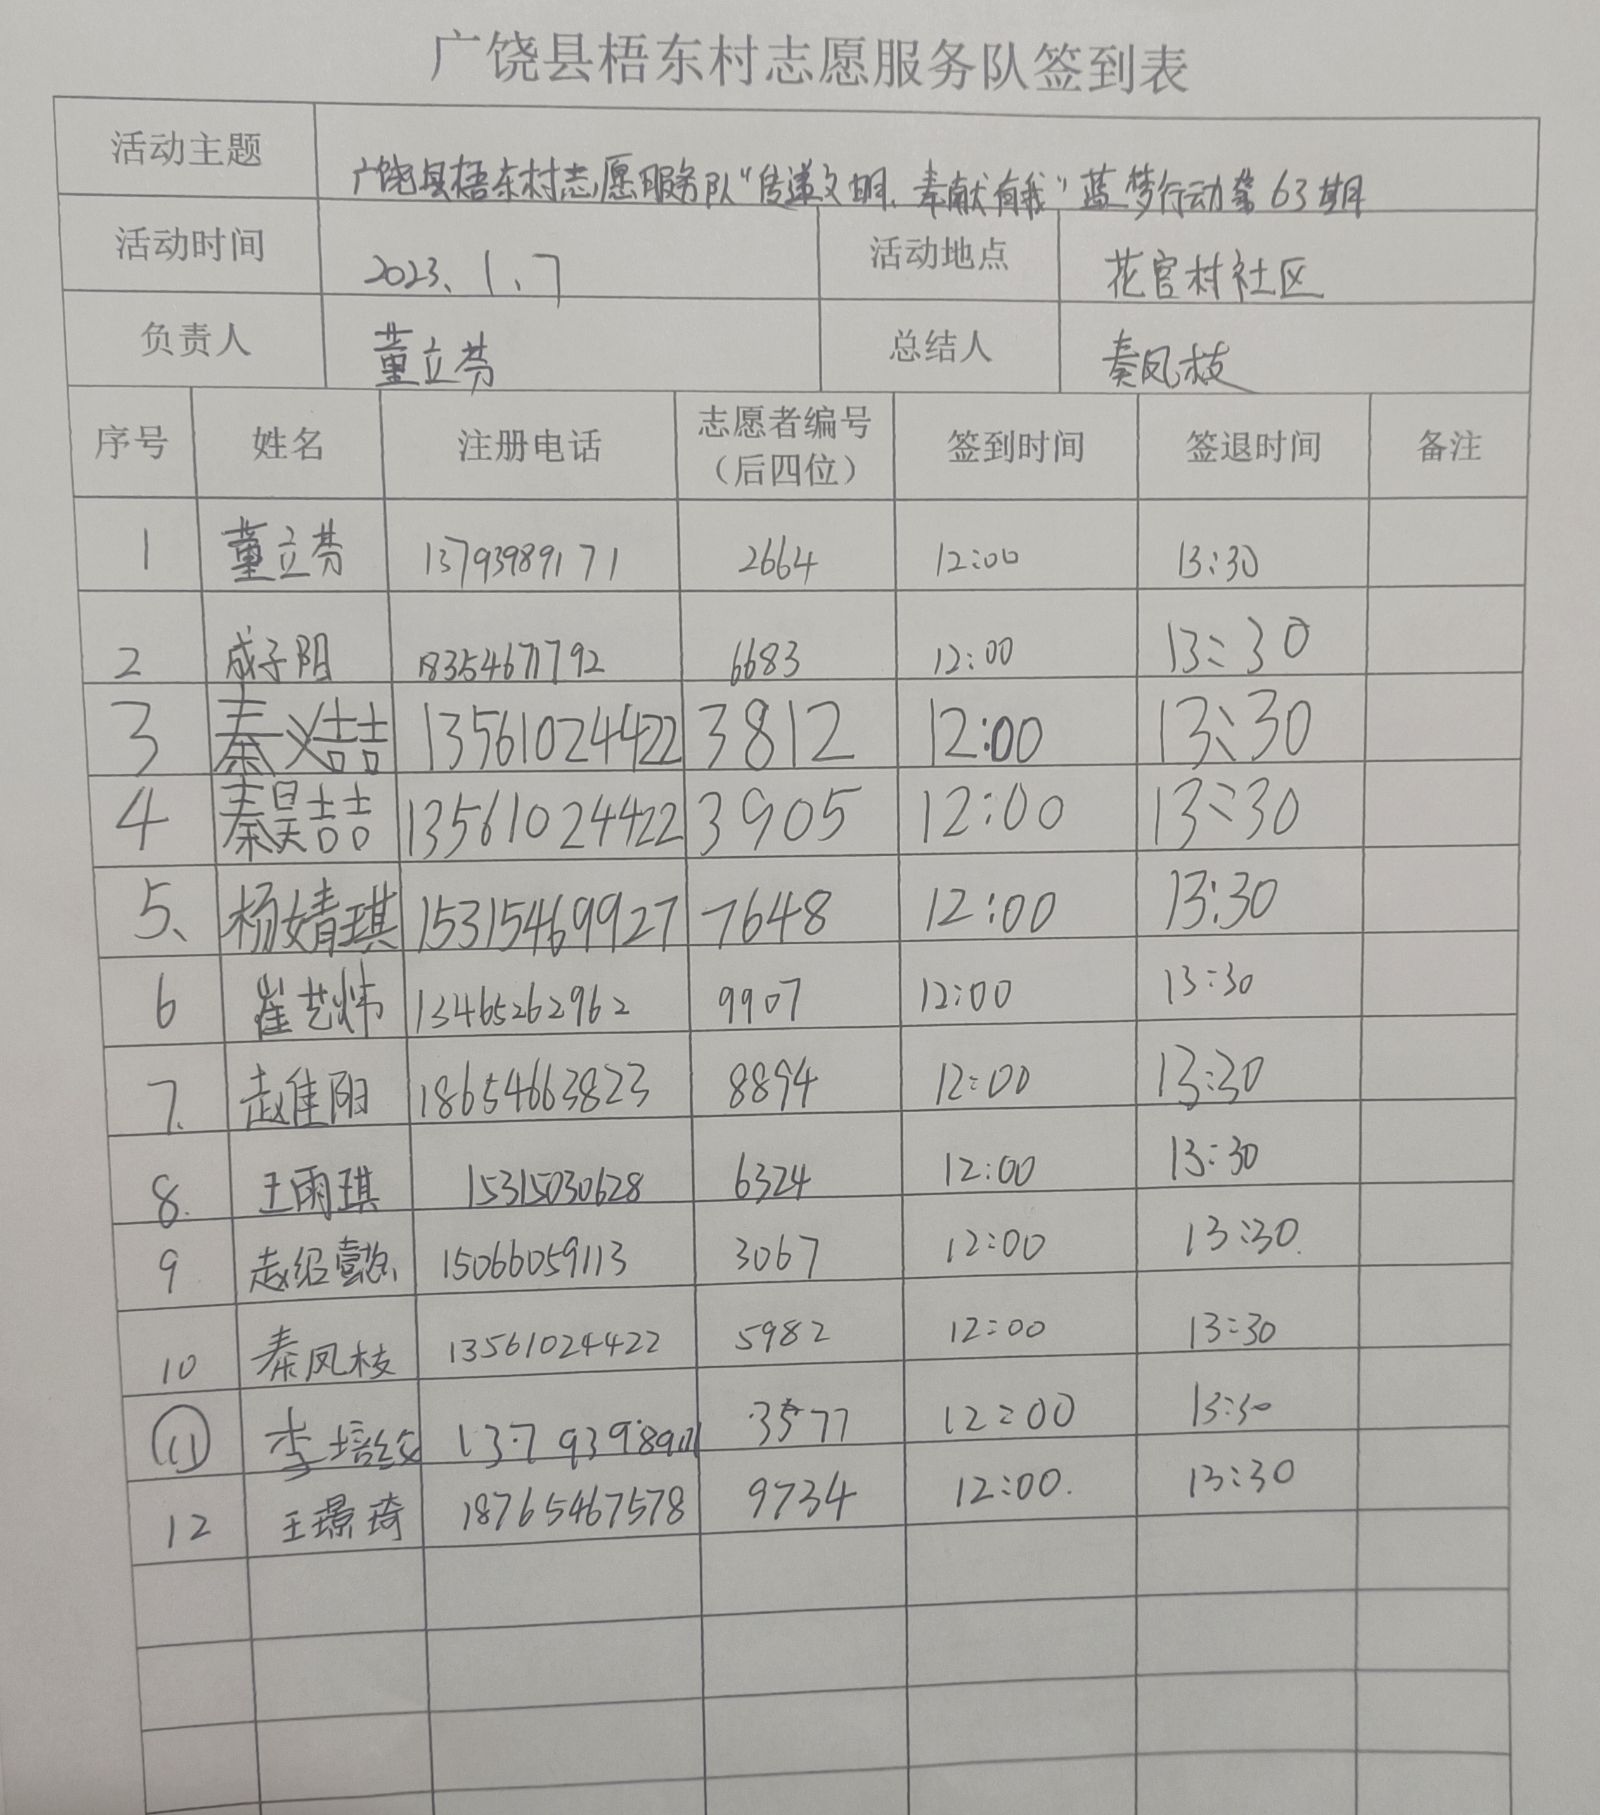 广饶县梧东村志愿服务队签到表
活动主题 广饶县梧东村志愿服务队“传递文明、奉献有我”蓝梦行动第63期
活动时间 2023、1、7 活动地点 花官村社区
负责人 董立芬 总结人 秦凤枝
序号 姓名 注册电话 志愿者编号（后四位） 签到时间 签退时间 备注
1 董立芬 13793989171 2664 12:00 13:30
2 成子阳 18354671792 6683 12:00 13:30
3 秦义喆 13561024422 3812 12:00 13:30
4 秦昊喆 13561024422 3905 12:00 13:30
5、 杨婧琪 15315469927 7648 12:00 13:30
6 崔艺炜 13465262962 9907 12:00 13:30
7. 赵佳阳 18654663823 8894 12:00 13:30
8. 王雨琪 15315030628 6324 12:00 13:30
9 赵绍懿 15066059113 3067 12:00 13:30.
10 秦凤枝 13561024422 5982 12:00 13:30
11 李培 3577 12:00 13:30
12 王璟琦 18765467578 9734 12:00. 13:30